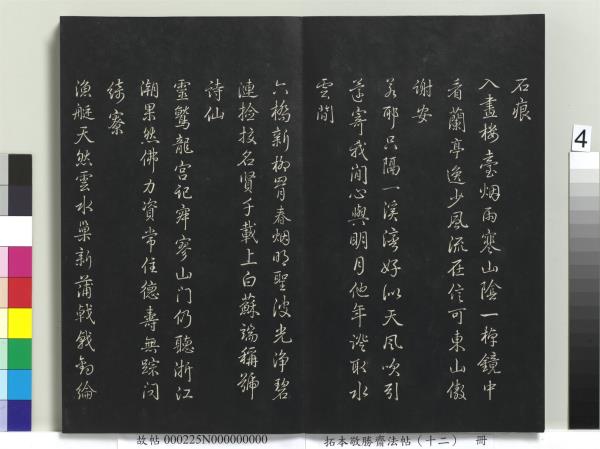 石痕
入畫樓臺烟雨寒山陰一棹鏡中
看蘭亭逸少風流在信可東山傲
謝安
若耶只隔一溪灣好似天風吹引
還寄我閒心與明月他年證取水
雲間
六橋新柳罥春烟明聖波光淨碧
漣撿校名賢千載上白蘇端稱號
詩仙
靈鷲龍宮記寂寥山門仍聽浙江
潮果然佛力資常住德壽無踪問
綺寮
漁艇天然雲水巢新蒲釣綸
4
故帖 000225N000000000
拓本敬勝齋法帖（十二） 冊